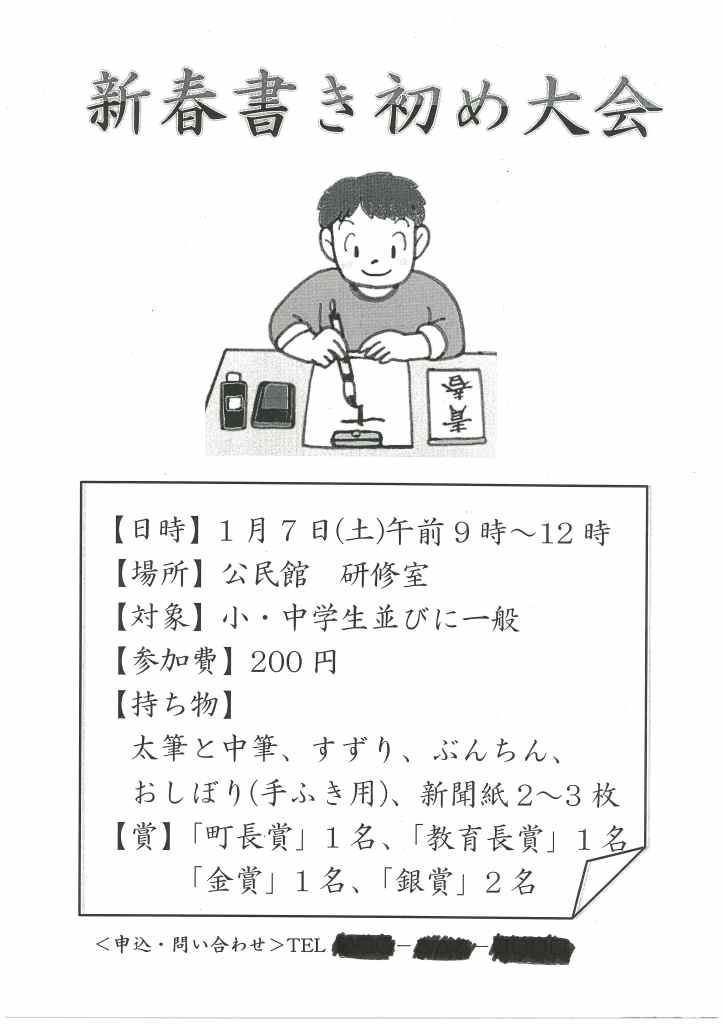 新春書き初め大会
青春
【日時】1月7日(土)午前9時～12時
【場所】公民館　研修室
【対象】小・中学生並びに一般
【参加費】200円
【持ち物】
太筆と中筆、すずり、ぶんちん、
おしぼり(手ふき用)、新聞紙2～3枚
【賞】「町長賞」1名、「教育長賞」1名
「金賞」1名、「銀賞」2名
＜申込・問い合わせ＞TEL